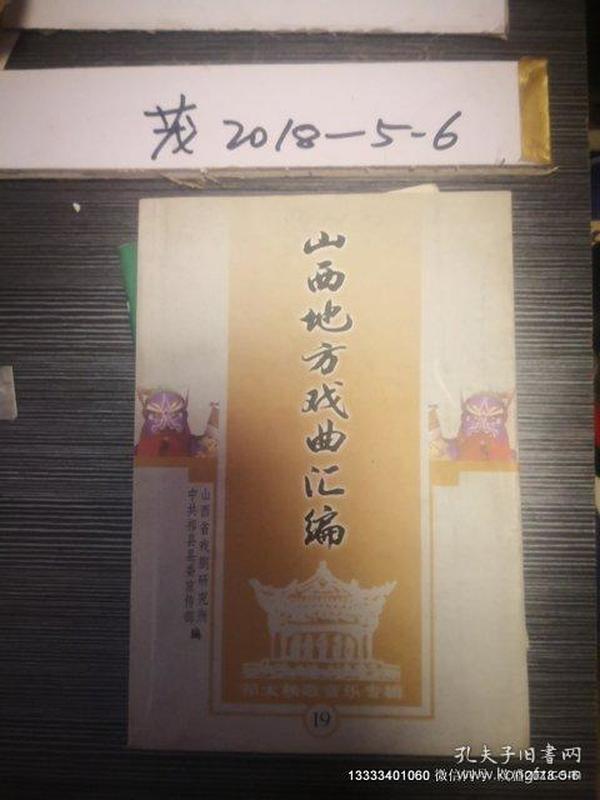 茂2018-5-6
山西地方戏曲汇编
山西省戏剧研究所
中共祁县县委宣传部
编
祁太秧歌音乐专辑
19
孔夫子旧书网
13333401060